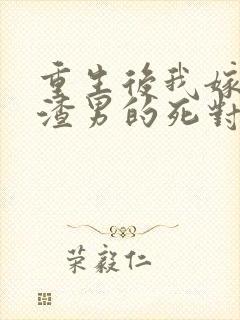 重生後我嫁
渣男的死對
荣毅仁